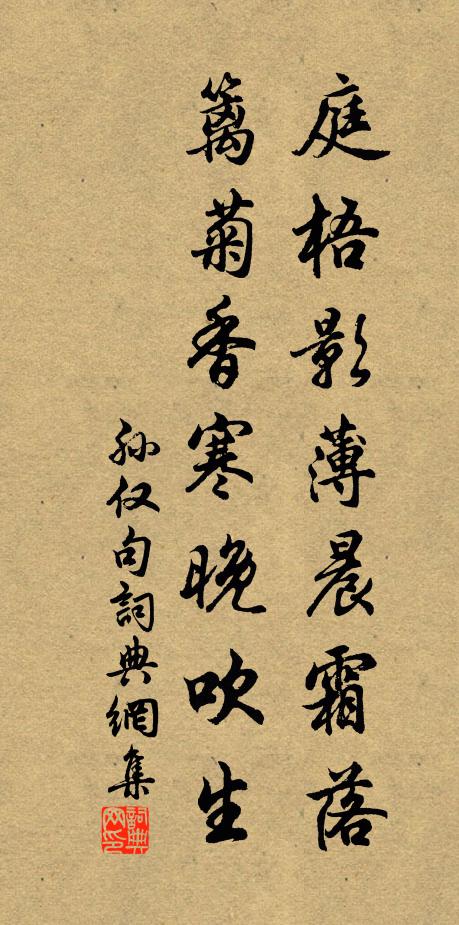 庭梧影薄晨霜落
篱菊香寒晚吹生
孙仅句詞典網集
詞典网印